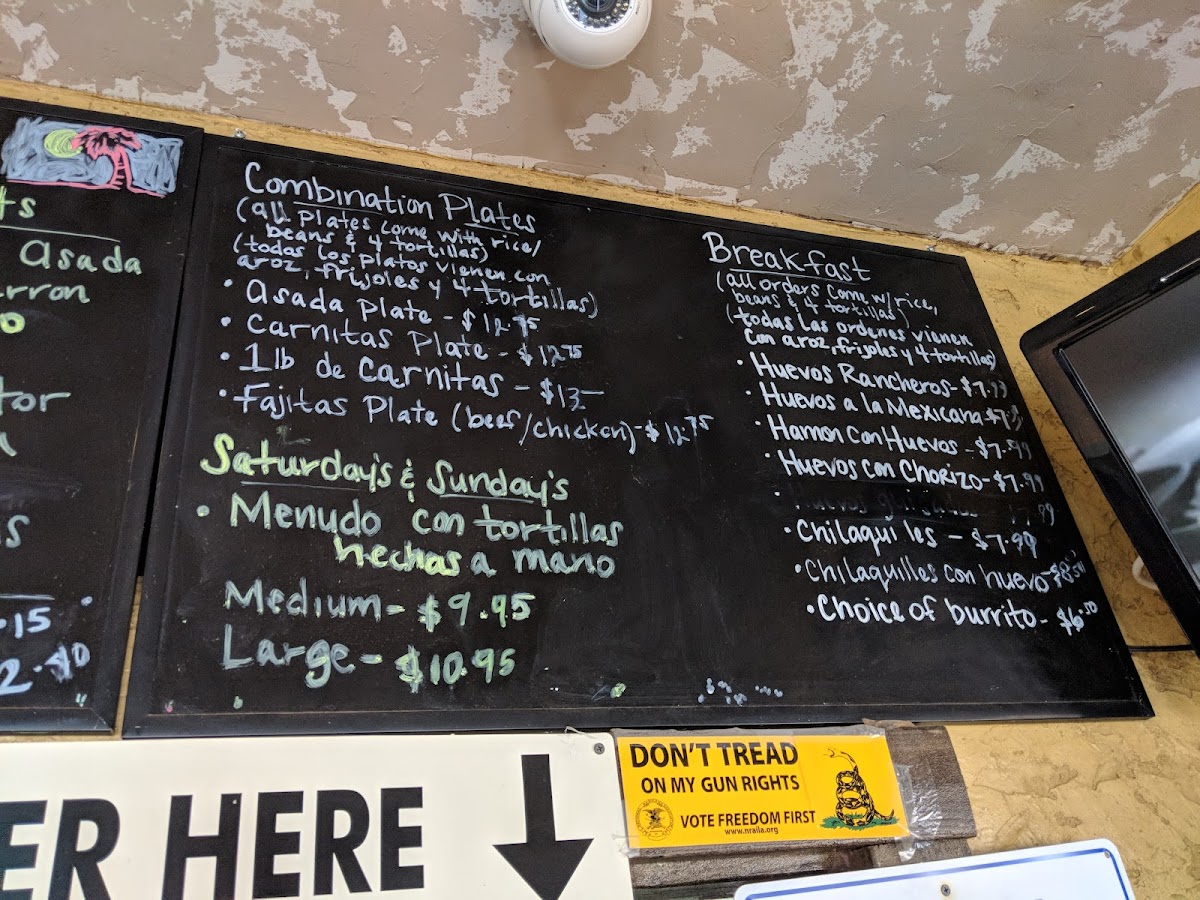 ts
Asada
rron
o
tor
s
.15
2.40
Combination Plates
(all plates come with rice/
beans & 4 tortillas)
(todas los platos vienen con
aroz, frijoles y 4 tortillas)
• Asada Plate - $12.75
• Carnitas Plate - $12.75
• 1 lb de Carnitas - $13-
• Fajitas Plate (beef/chicken) - $12.75
Saturday's & Sunday's
• Menudo con tortillas
hechas a mano
Medium - $9.95
Large - $10.95
Breakfast
(all orders come w/rice,
beans & 4 tortillas)
(todas las ordenes vienen
con aroz, frijoles y 4 tortillas)
• Huevos Rancheros - $7.99
• Huevos a la Mexicana $7.99
• Hamon con Huevos - $7.99
• Huevos con Chorizo - $7.99
• Chilaquiles - $7.99
• Chilaquilles con huevo - $8.50
• Choice of burrito - $6.50
ER HERE
DON'T TREAD
ON MY GUN RIGHTS
VOTE FREEDOM FIRST
www.nraila.org